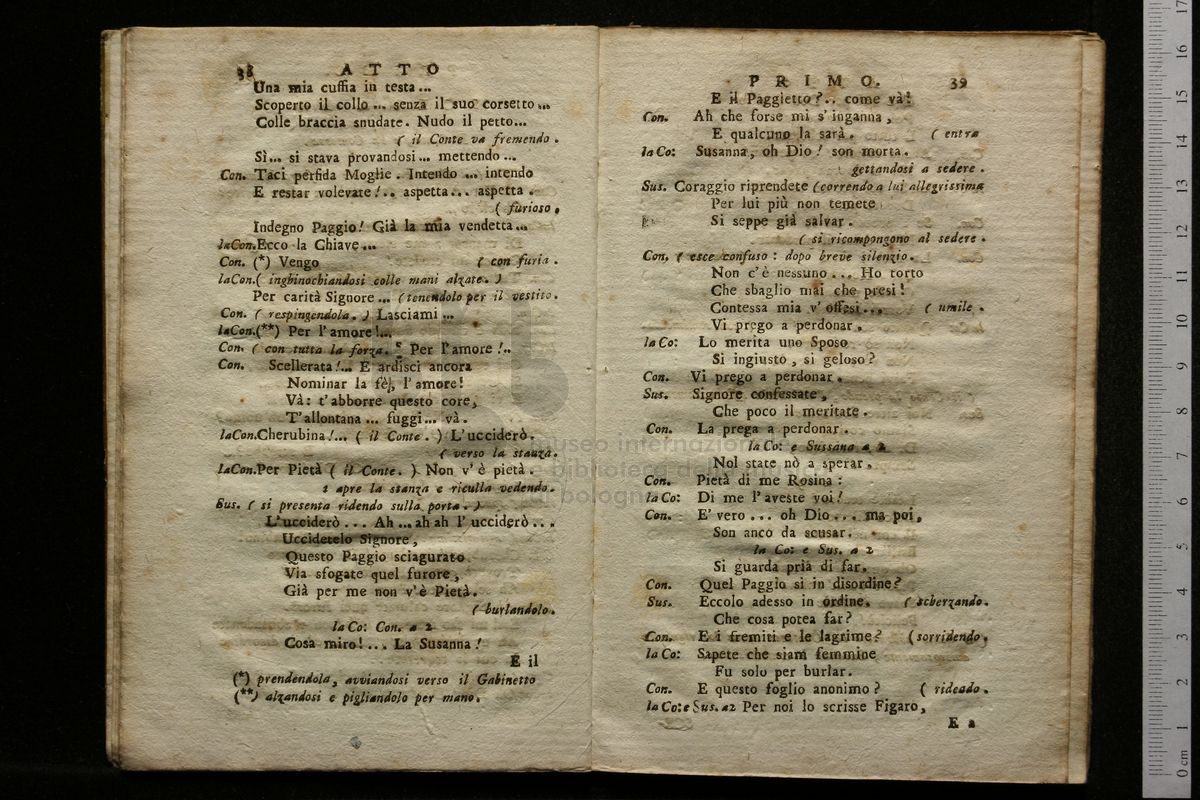 38 ATTO
Una mia cuffia in testa...
Scoperto il collo... senza il suo corsetto...
Colle braccia snudate. Nudo il petto...
( il Conte va fremendo.
Sì... si stava provandosi... mettendo...
Con. Taci perfida Moglie. Intendo... intendo
E restar volevate!.. aspetta... aspetta.
( furioso.
Indegno Paggio! Già la mia vendetta...
laCon.Ecco la Chiave...
Con. (*) Vengo ( con furia.
laCon.( inghinochiandosi colle mani alzate. )
Per carità Signore... (tenendolo per il vestito.
Con. ( respingendola. ) Lasciami...
laCon.(**) Per l'amore!...
Con. ( con tutta la forza. Per l'amore!..
Con. Scellerata!... E ardisci ancora
Nominar la fè, l'amore!
Và: t'abborre questo core,
T'allontana... fuggi... và.
laCon.Cherubina!... ( il Conte. ) L'ucciderò.
( verso la stanza.
laCon.Per Pietà ( il Conte. ) Non v'è pietà.
apre la stanza e riculla vedendo.
Sus. ( si presenta ridendo sulla porta. )
L'ucciderò... Ah... ah ah l'ucciderò...
Uccidetelo Signore,
Questo Paggio sciagurato
Via sfogate quel furore,
Già per me non v'è Pietà.
( burlandolo.
la Co: Con. a 2
Cosa miro!... La Susanna!
E il
(*) prendendola, avviandosi verso il Gabinetto
(**) alzandosi e pigliandolo per mano.
PRIMO. 39
E il Paggietto?.. come và!
Con. Ah che forse mi s'inganna,
E qualcuno la sarà. ( entra
la Co: Susanna, oh Dio! son morta.
gettandosi a sedere.
Sus. Coraggio riprendete (correndo a lui allegrissima
Per lui più non temete
Si seppe già salvar.
( si ricompongono al sedere.
Con. ( esce confuso: dopo breve silenzio.
Non c'è nessuno... Ho torto
Che sbaglio mai che presi!
Contessa mia v'offesi... ( umile.
Vi prego a perdonar.
la Co: Lo merita uno Sposo
Si ingiusto, si geloso?
Con. Vi prego a perdonar.
Sus. Signore confessate,
Che poco il meritate.
Con. La prega a perdonar.
la Co: e Sussana a 2
Nol state nò a sperar.
Con. Pietà di me Rosina:
la Co: Di me l'aveste voi!
Con. E' vero... oh Dio... ma poi,
Son anco da scusar.
la Co: e Sus. a 2
Si guarda prià di far.
Con. Quel Paggio si in disordine?
Sus. Eccolo adesso in ordine. ( scherzando.
Che cosa potea far?
Con. E i fremiti e le lagrime? (sorridendo.
la Co: Sapete che siam femmine
Fu solo per burlar.
Con. E questo foglio anonimo? ( rideado.
la Co:e Sus. a2 Per noi lo scrisse Figaro,
E a
museo internazionale
e biblioteca della musica
di bologna
0 cm 1 2 3 4 5 6 7 8 9 10 11 12 13 14 15 16 17